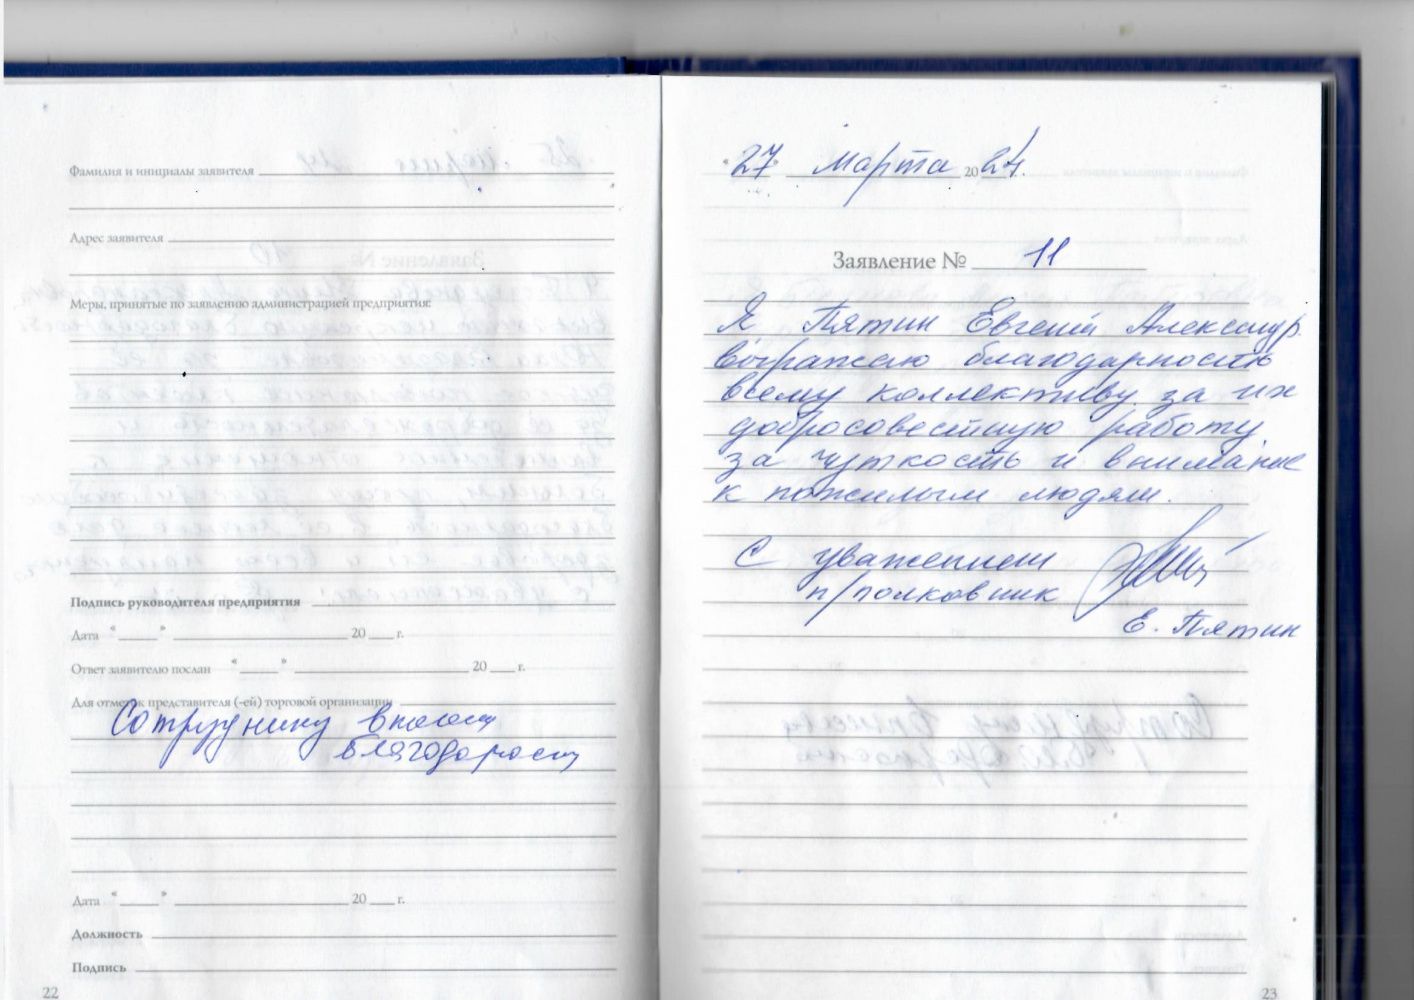 Фамилия и инициалы заявителя
Адрес заявителя
Меры, принятые по заявлению администрацией предприятия:
Подпись руководителя предприятия
Дата " " 20 г.
Ответ заявителю послан " " 20 г.
Для отметок представителя (-ей) торговой организации
Сотруднику
благодарость
Дата " " 20 г.
Должность
Подпись
22
"27" Марта 2024.
Заявление № 11
Я Пятин Евгений Александр
выражаю благодарность
всему коллективу за их
добросовестную работу,
за чуткость и внимание
к пожилым людям.
С уважением
п/полковник
Е. Пятин
23